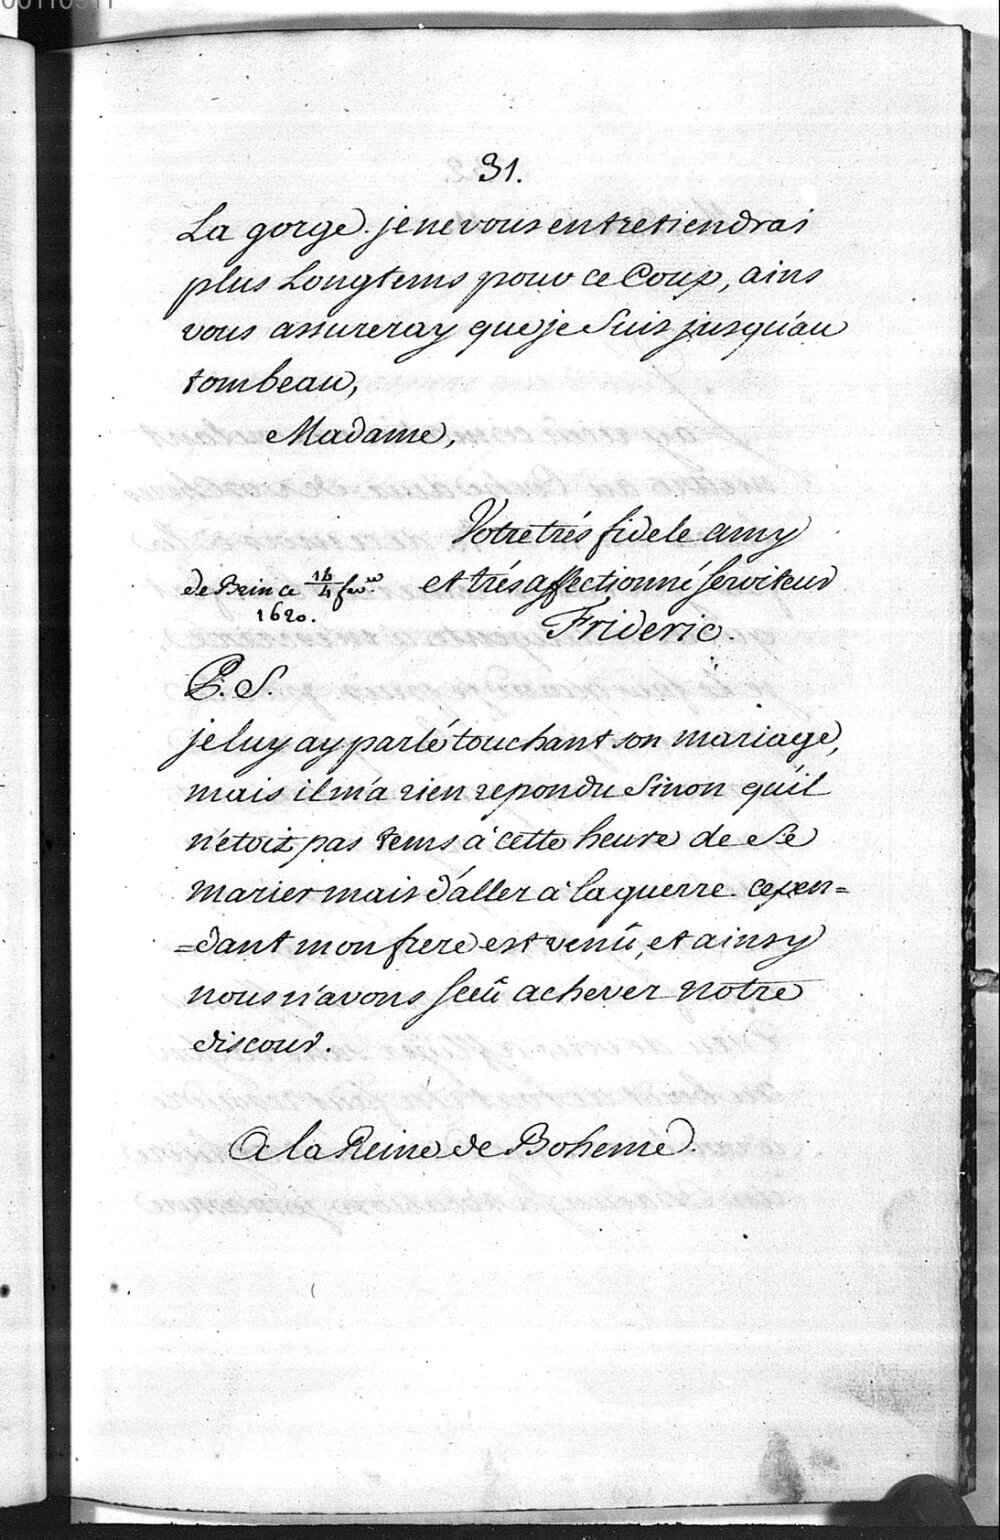 31.
La gorge. je ne vous entretiendrai
plus Longtems pour ce Coup, ains
vous assureray que je Suis jusqu'au
tombeau,
Madame,
Votre trés fidele amy
et trés affectionné serviteur
de Brin ce 14/4 fevr.
1620.
Frideric.
P. S.
je luy ay parlé touchant son mariage,
mais il m'a rien repondu Sinon qu'il
n'etoit pas tems à cette heure de Se
marier mais d'aller à la guerre. cepen=
=dant mon frere est venû, et ainsy
nous n'avons sceû achever notre
discours.
A la Reine de Boheme.